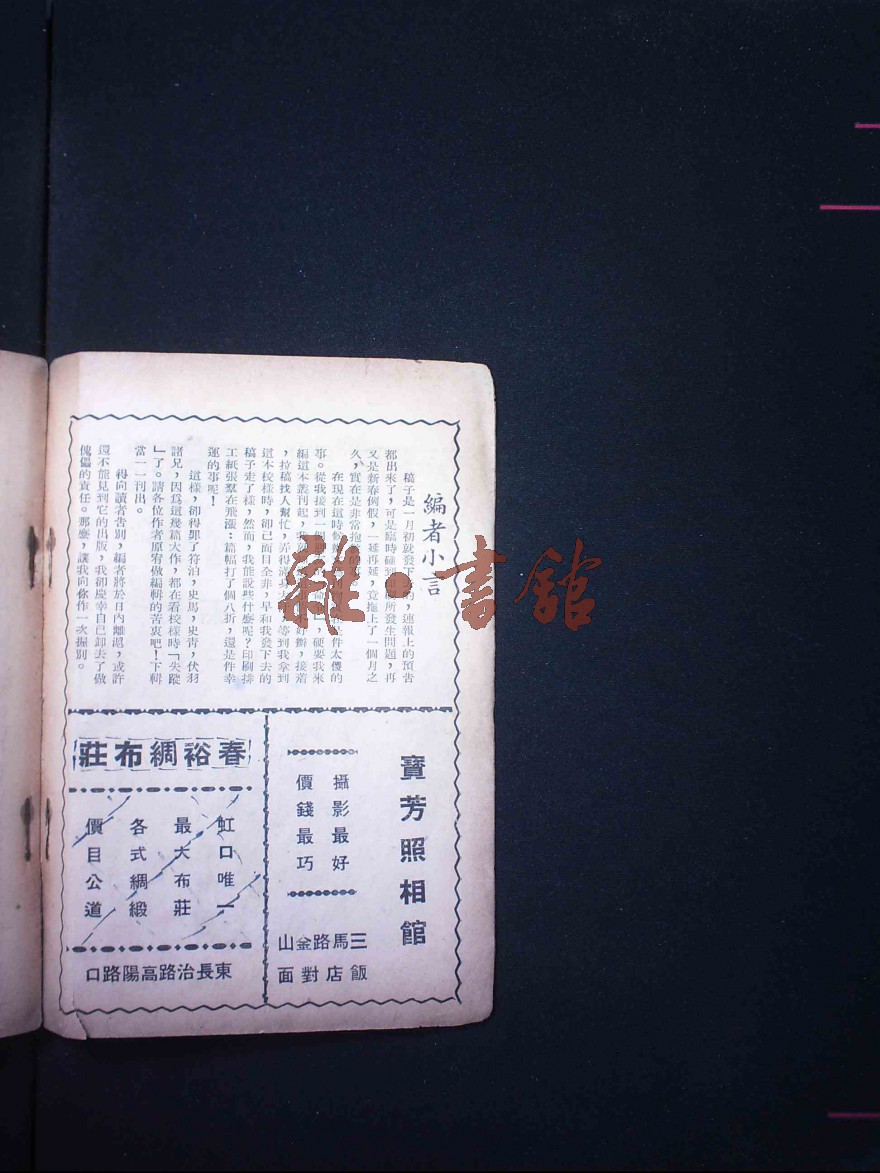 編者小言
稿子是一月初就發下 的，速報上的預告
都出來了，可是臨時碰到 所發生問題，再
又是新春例假，一延再延，竟拖上了一個月之
久，實在是非常抱
在現在這時候 是件太傻的
事。從我接到一個 硬要我來
編這本叢刊起，我 好辦，接着
，拉稿找人幫忙，弄得滿身 等到我拿到
這本校樣時，卻已面目全非，早和我發下去的
稿子走了樣，然而，我能說些什麼呢？印刷排
工紙張羣在飛漲：篇幅打了個八折，還是件幸
運的事呢！
這樣，卻得罪了符泊，史馬，史青，伏羽
諸兄，因爲這幾篇大作，都在看校樣時「失蹤
」了。請各位作者原宥做編輯的苦衷吧！下輯
當一一刊出。
得向讀者告別，編者將於日內離滬，或許
還不能見到它的出版，我卻慶幸自己卸去了做
傀儡的責任。那麼，讓我向你作一次握別。
雜·書館
寶芳照相館
攝影最好
價錢最巧
三馬路金山
飯店對面
春裕綢布莊
虹口唯一
最大布莊
各式綢緞
價目公道
東長治路高陽路口